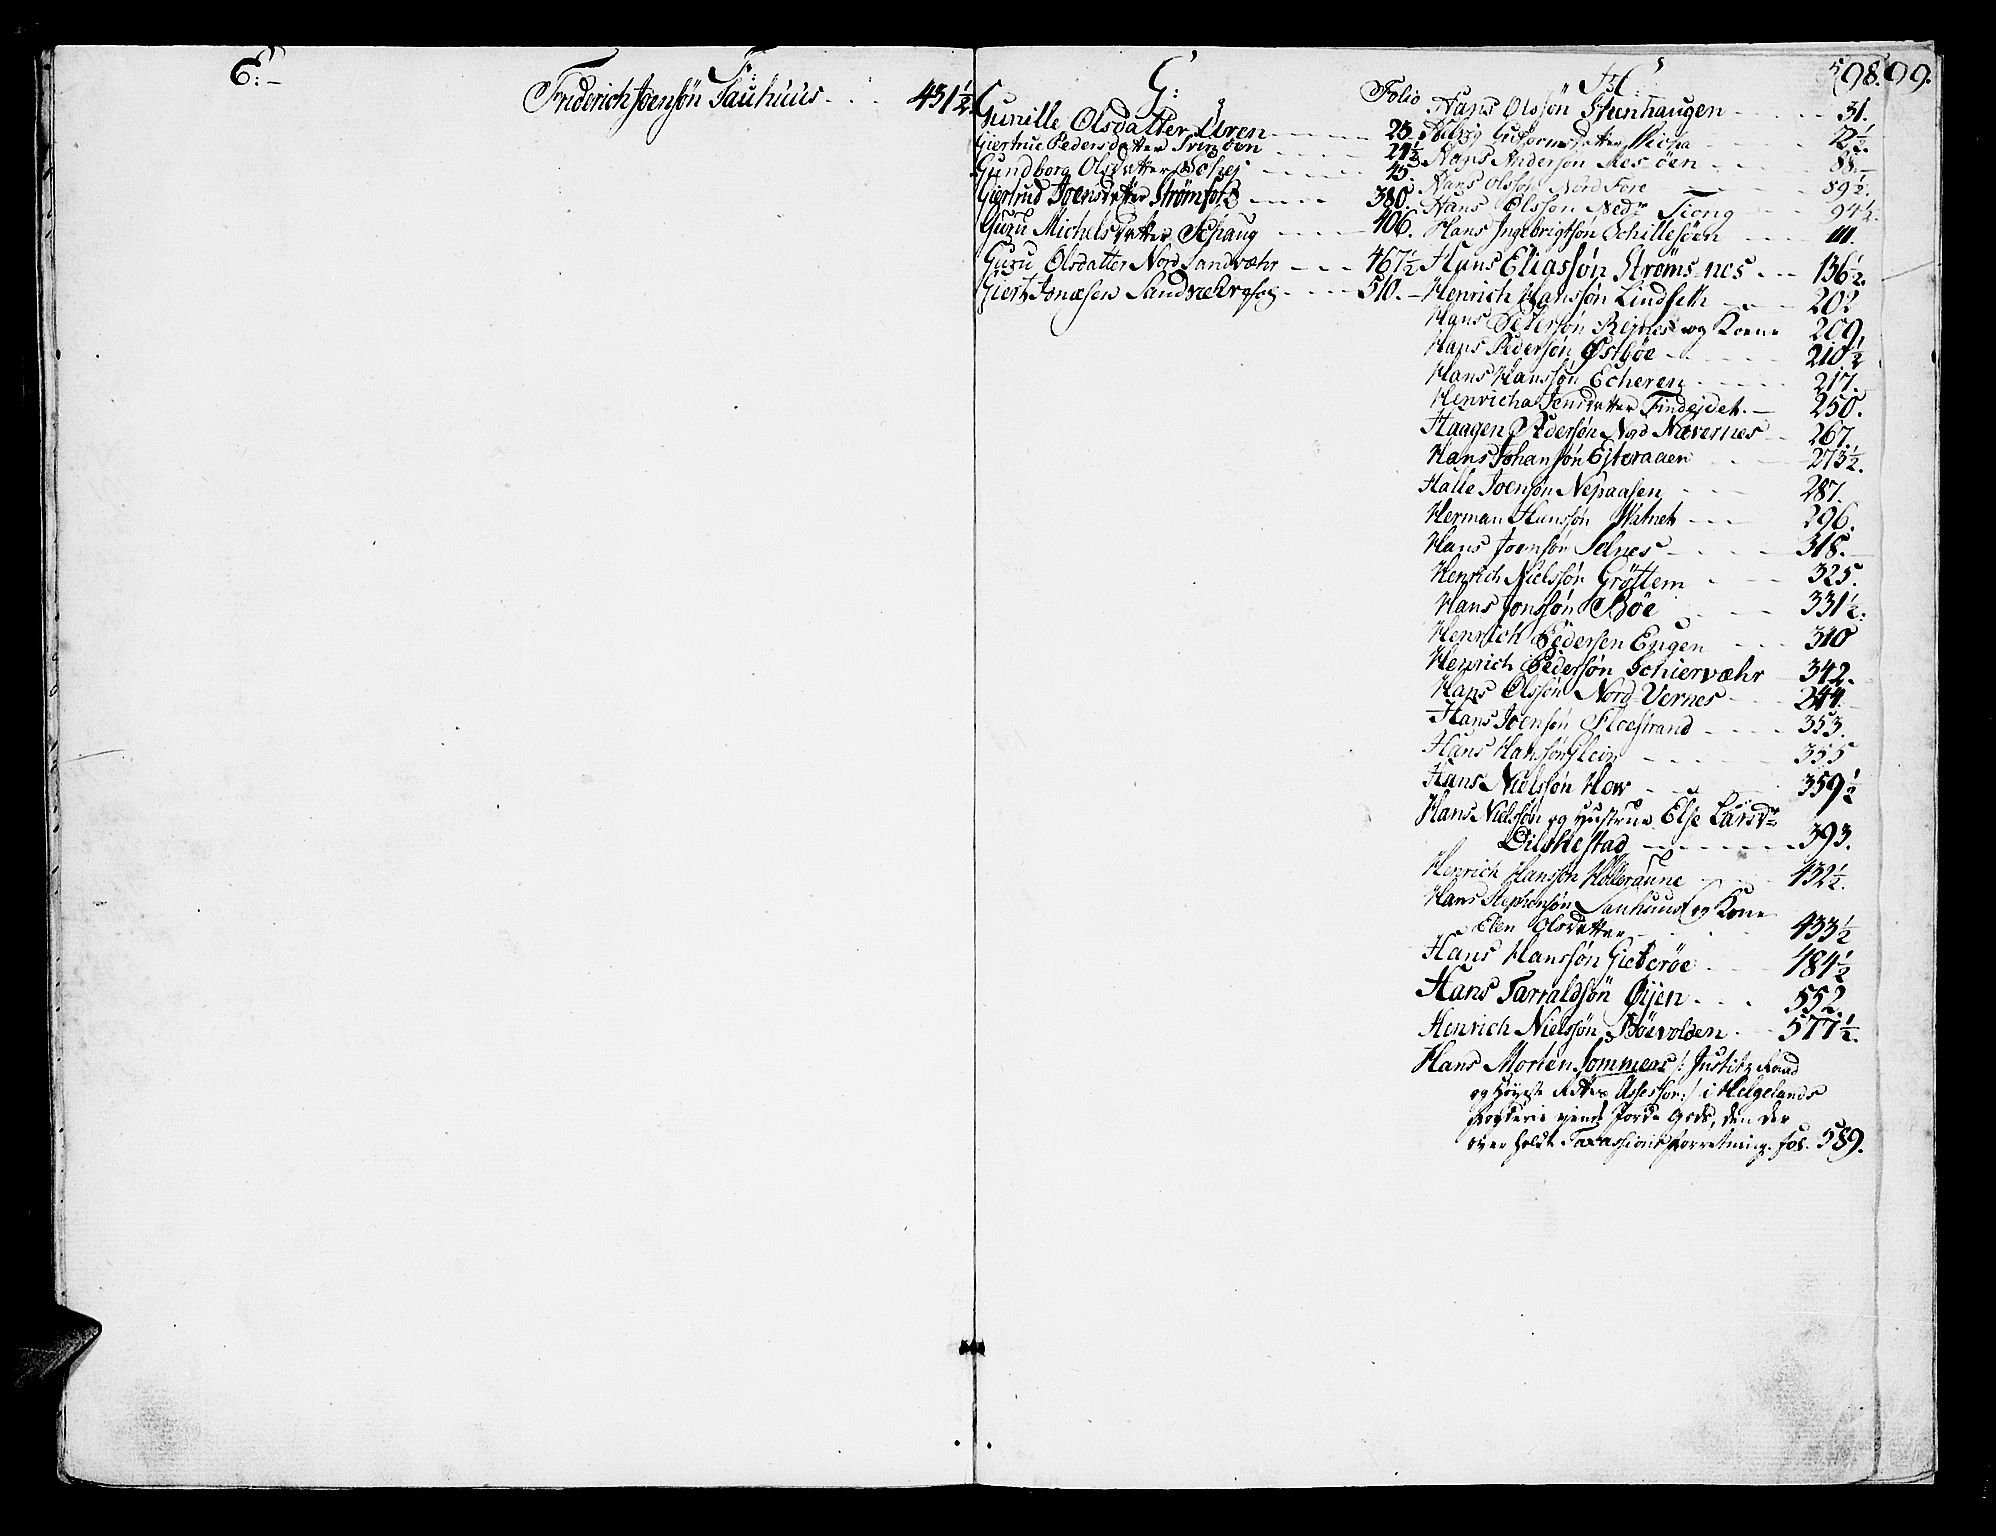 E:
F:
Friderich Joensøn Sauhuus 431½
G:
Folio
Gunille Olsdatter Uren 25.
Giertrue Pedersdatter 24½
Gundborg Olsdatter 45.
Giertrud Joensdatter Strømfors 380.
Guru Michelsdatter Schaug 406.
Guru Olsdatter Nord Sandvæhr 467½
Giert Jonæsen 510.
598.
99.
H:
Hans Olssøn Stenhaugen 31.
Gutormsdatter 72½.
Hans Anderssøn 88.
Hans Olssøn Nord Fore 89½.
Hans Olsson Nedr Tieng 94½.
Hans Ingebrigtsøn Schillesöen 111.
Hans Eliassøn Strømsnes 136½.
Henrich Hanssøn Lindseth 202
Hans Pedersøn Reines og Kone 209.
Hans Pedersøn Østböe 210½
Hans Hanssøn Echeren 217.
Henricha Jensdatter Findejdet 250.
Haagen Pedersøn Nord Nævernes 267.
Hans Johansøn Ejteraaen 273½.
Halle Joensøn Nepaasen 287.
Herman Hanssøn Watnet 296.
Hans Joensøn Selnes 318.
Henrich Nielssøn Grøttem 325.
Hans Jonssøn Böe 331½.
Henrich Pedersen Engen 340
Henrich Pedersøn Schiervæhr 342.
Hans Olssøn Nord Vernes 244.
Hans Joensøn Floestrand 353.
Hans Hanssøn 355
Hans Nielssøn How 359½
Hans Nielssøn og Hustrue Else Larsdr
Dilkestad 393.
Henrich Hanssøn Holleraune 432½.
Hans Stephensøn Sauhuus og Kone
Elen Olsdatter 433½
Hans Hanssøn Gieterøe 484½
Hans Tarraldsøn Öÿen 552.
Henrich Nielssøn Böevolden 577½.
Hans Morten Sommers /: Justitz Raad
og Høyeste Retters Assessor :/ i Helgelands
Fogderie ejende Jorde Gods, den der
over holdt Taxassions forretning. fol. 589.